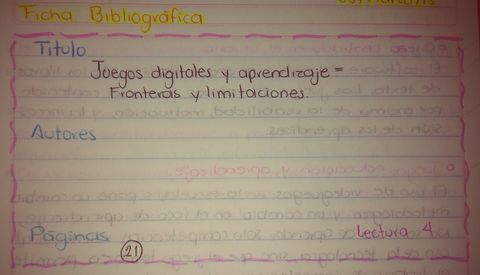 Ficha Bibliográfica
Título
Juegos digitales y aprendizaje =
Fronteras y limitaciones.
Autores
Páginas
Lectura 4
21